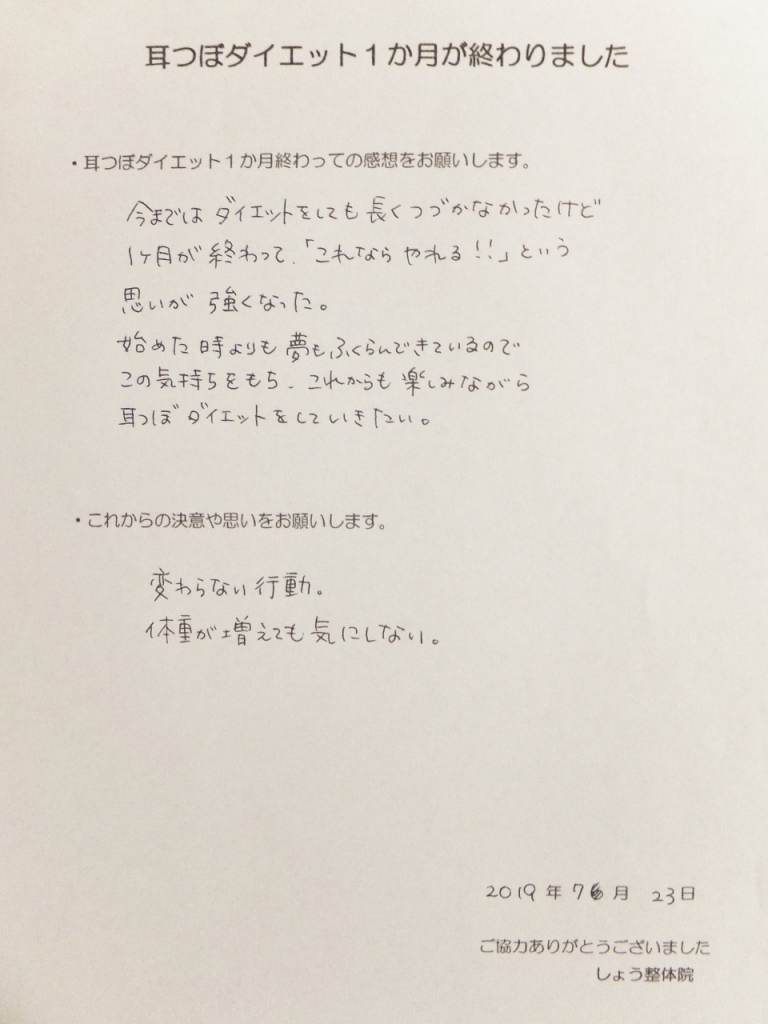 耳つぼダイエット1か月が終わりました
・耳つぼダイエット1か月終わっての感想をお願いします。
今までは ダイエットをしても 長くつづかなかったけど
1ヶ月が 終わって、「これなら やれる!!」という
思いが 強くなった。
始めた時よりも 夢もふくらんできているので
この気持ちをもち、これからも 楽しみながら
耳つぼ ダイエットをしていきたい。
・これからの決意や思いをお願いします。
変わらない行動。
体重が増えても気にしない。
2019年 7月 23日
ご協力ありがとうございました
しょう整体院